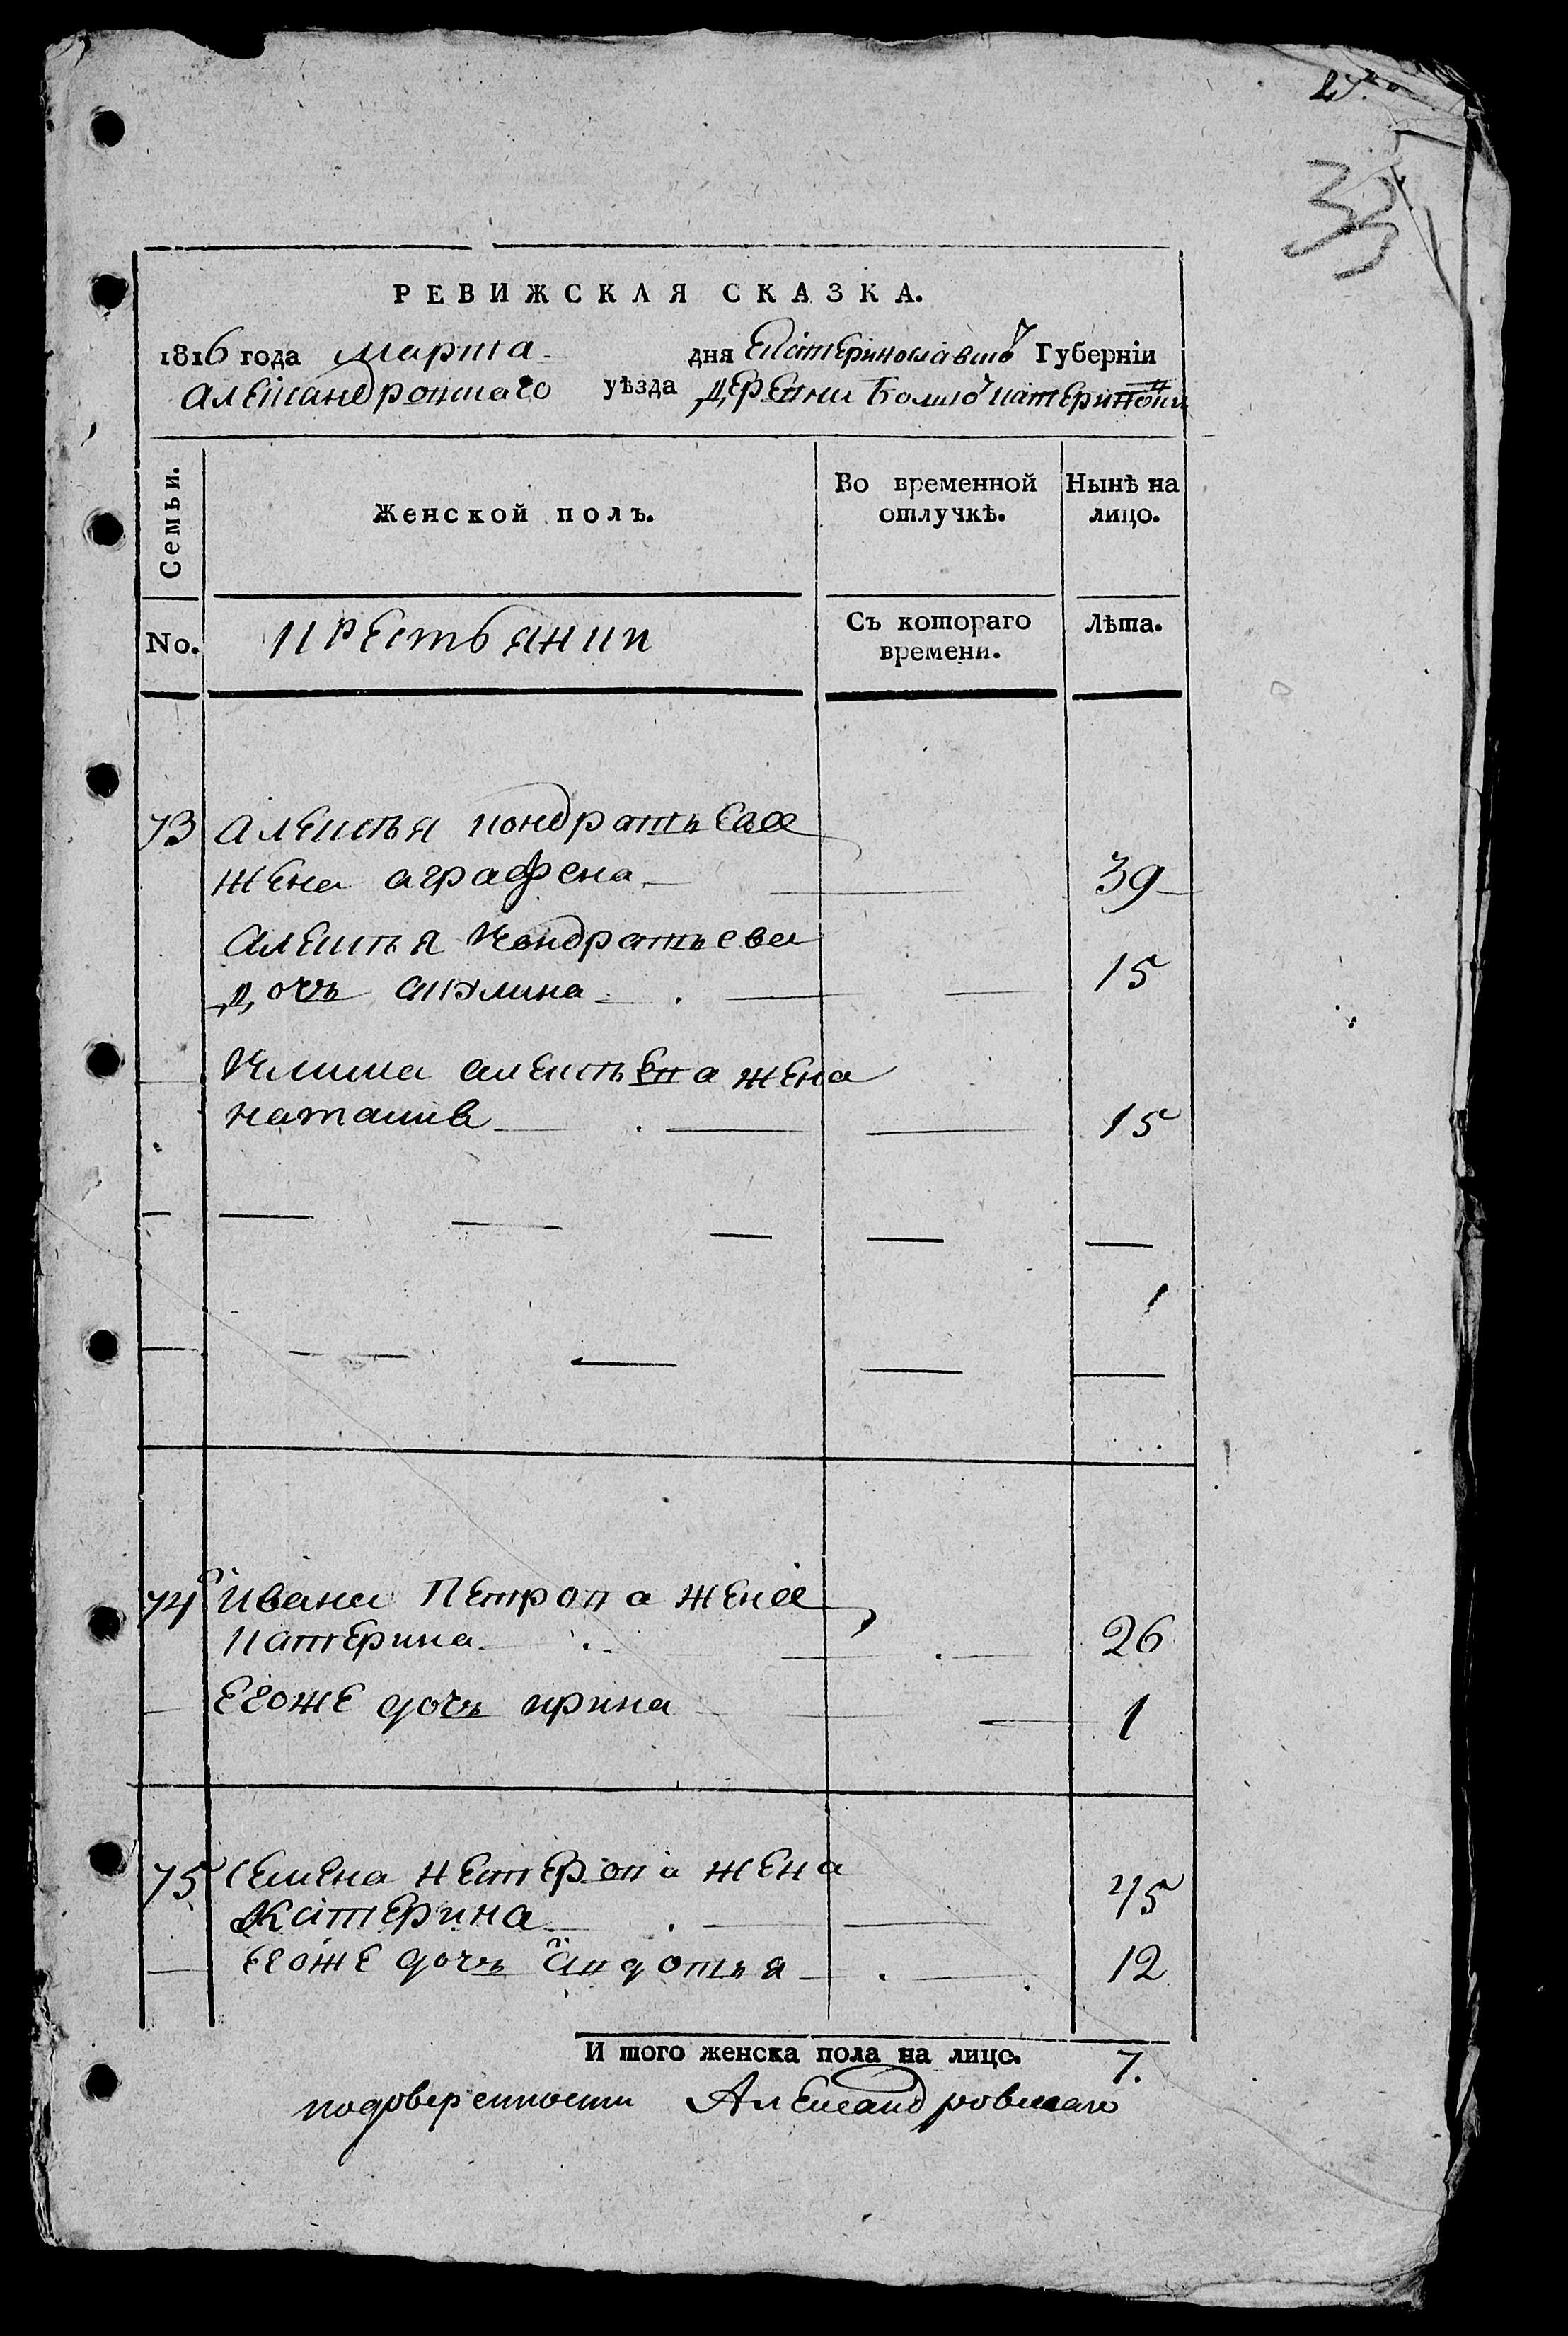 33
РЕВИЖСКАЯ СКАЗКА.
1816 года марта дня Екатеринославской Губерніи
александровскаго уѣзда деревни Болшой катериновки
Семьи.
Женской полъ.
Во временной отлучкѣ.
Нынѣ на лицо.
No.
крестьянки
Съ котораго времени.
Лѣта.
73 алексѣя кондратьева
жена аграфена 39
алексѣя кондратьева
дочь акилина 15
клима алексѣева жена
наталия 15
74 ивана петрова жена
катерина 26
егоже дочь ирина 1
75 семена нестерова жена
катерина 45
егоже дочь авдотья 12
И того женска пола на лицо. 7.
подоверенности Александровскаго